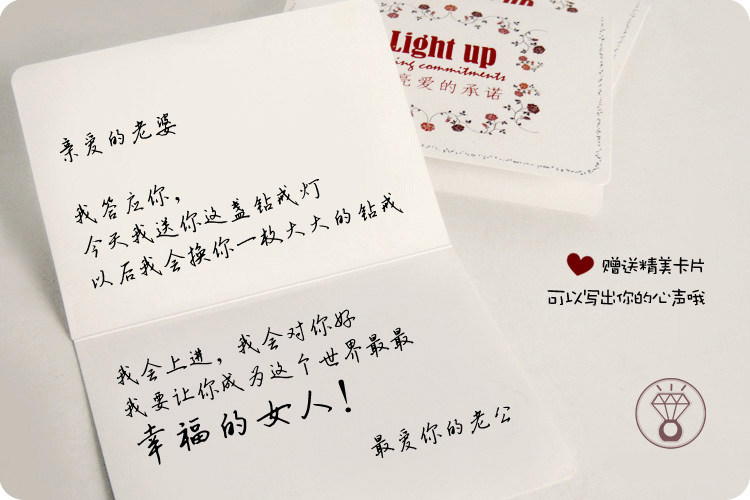 亲爱的老婆
我答应你，
今天我送你这盏钻戒灯
以后我会换你一枚大大的钻戒
我会上进，我会对你好
我要让你成为这个世界最最
幸福的女人！
最爱你的老公
Light up
ing commitments
亮爱的承诺
赠送精美卡片
可以写出你的心声哦